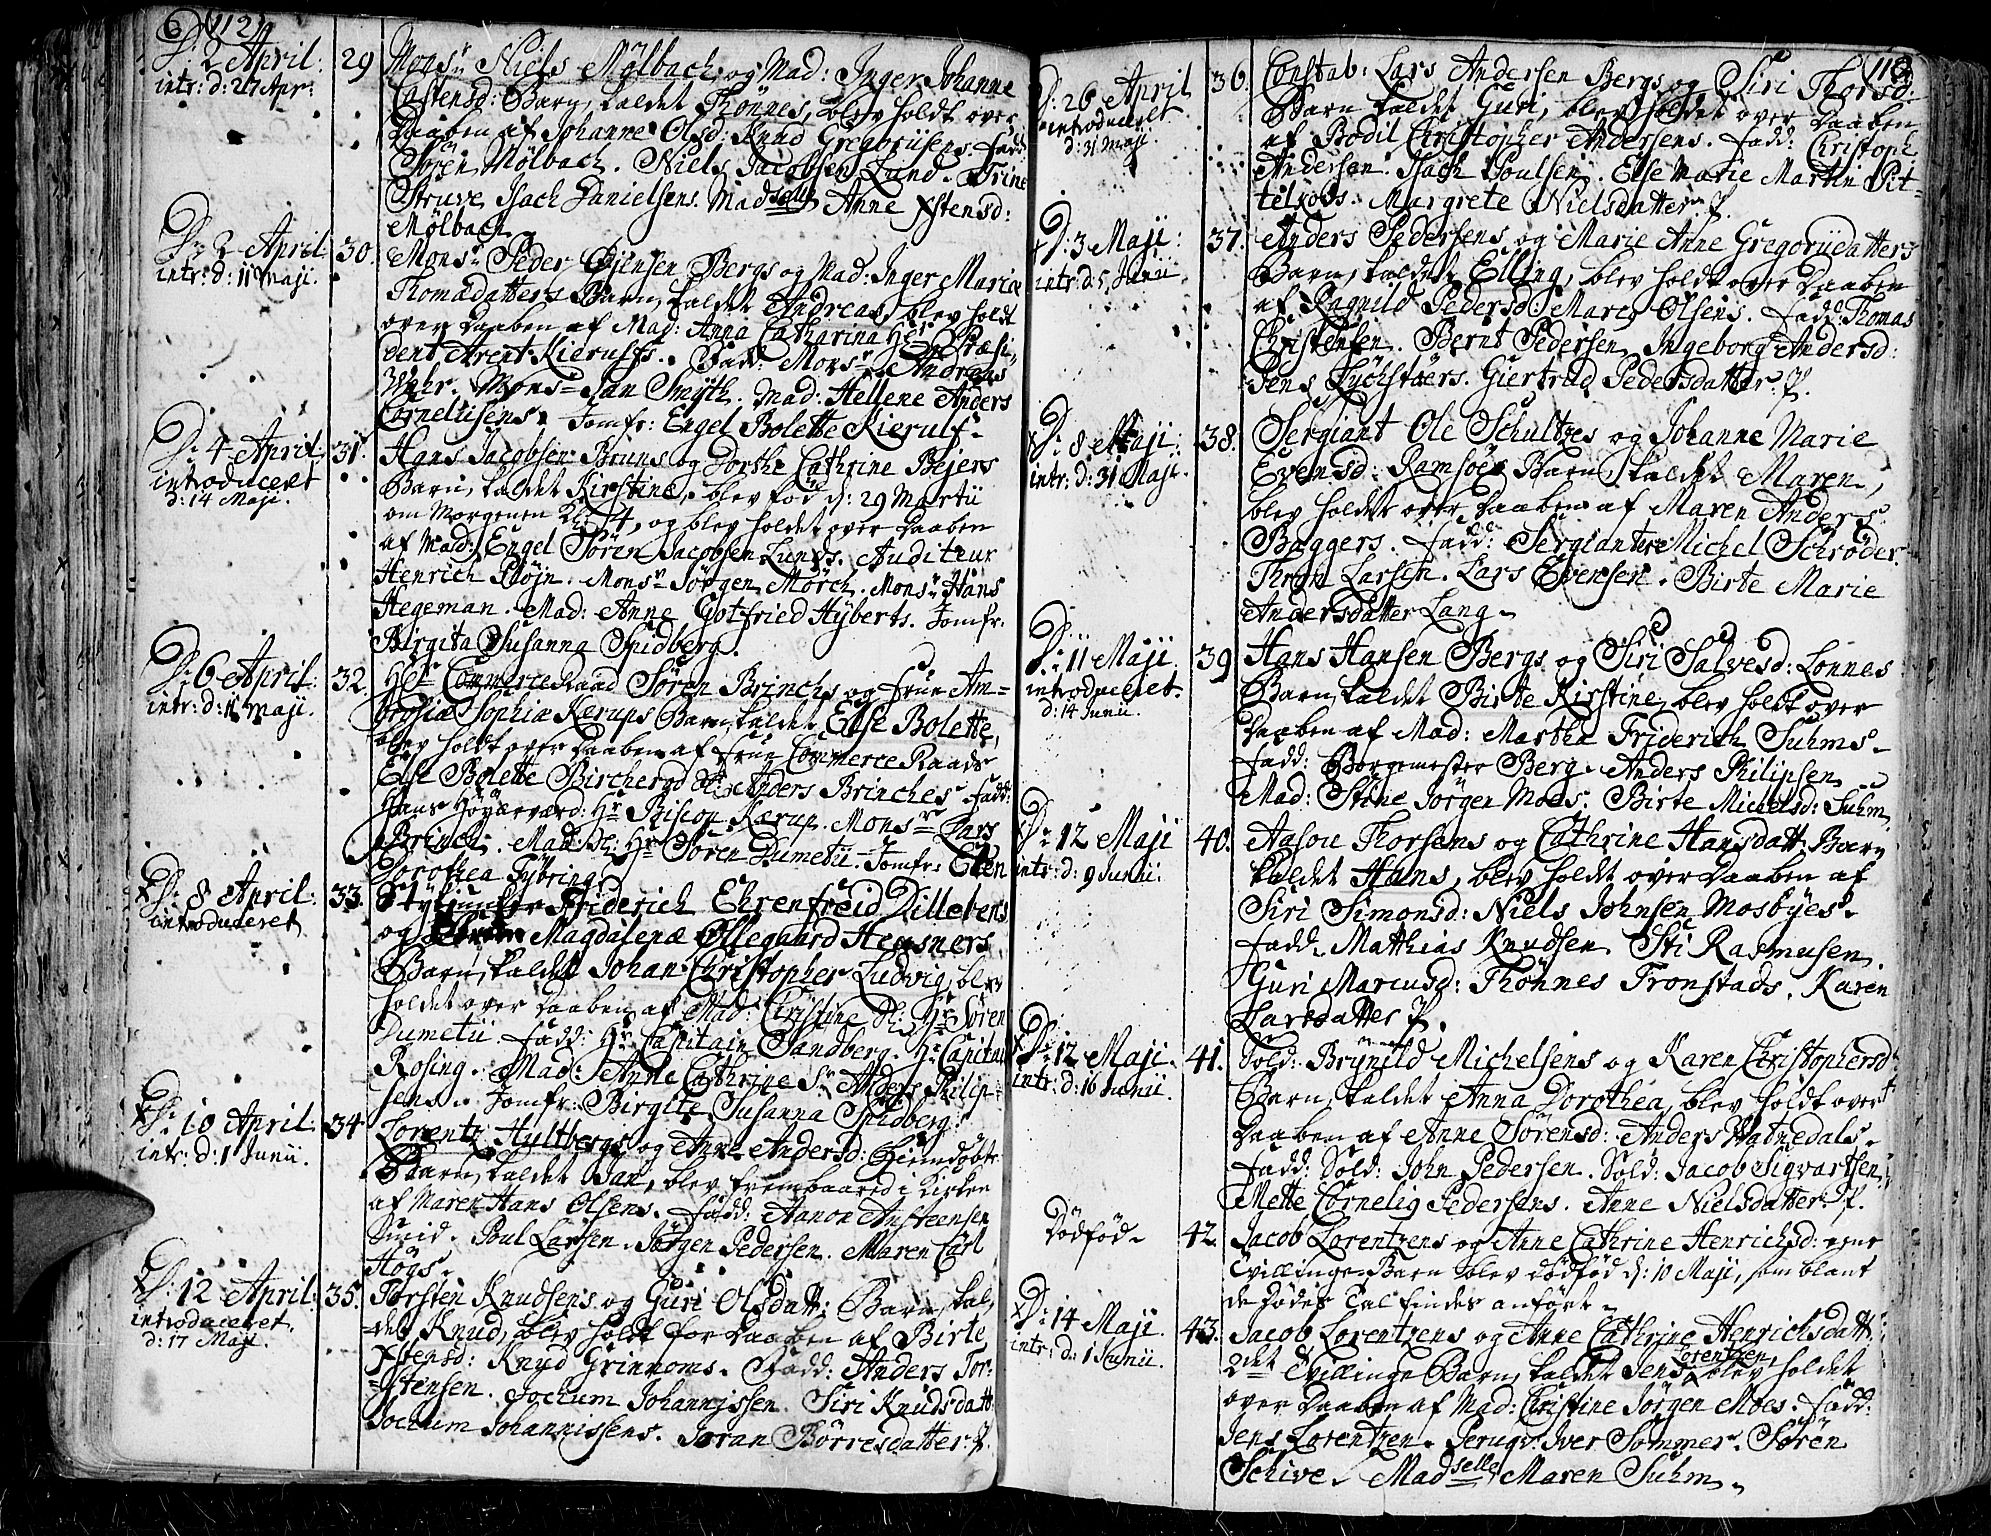 112
D: 2 April.
intr: d: 27 Apr:
29
Mons:r Niels Mölbachs og Mad: Inger Johanne
Carstensd: Barn, kaldet Thönnes, blev holdt over
Daaben af Johanne Olsd: Knud Gregoriisens. Fadd:
Sören Mölbach. Niels Jacobsen Lund. Trine
Struve Isach Danielsens. Mad:selle Anne Xstensd:
Mölbach.
D: 2 April
intr: d: 11 Maji.
30.
Mons:r Peder Jensen Bergs og Mad: Inger Maria
Thomædatters Barn, kaldet Andreas, blev holdt
over Daaben af Mad: Anna Catharina Hr Præsi-
dent Arent Kierulfs. Fadd: Mons:r Andreas
Wahr. Mons:r Jan Smÿth. Mad: Hellene Anders
Corneliisens. Jomfr: Engel Bolette Kierulf.
D: 4 April
introduceret
d: 14 Maji.
31.
Hans Jacobsen Bruns og Dorthe Cathrine Bejers
Barn, kaldet Kirstine, blev föd d: 29 Martii
om Morgenen Kl: 4, og blev holdet over Daaben
af Mad: Engel Sören Jacobsen Lunds. Auditeur
Henrich Plöjn. Mons:r Jörgen Mörch. Mons:r Hans
Hegeman. Mad: Anne Gotfried Hÿberts. Jomfr:
Birgita Susanna Spidberg.
D: 6 April:
intr: d: 11 Maji.
32.
Hr CommerceRaad Sören Brinchs og Frue Am-
brosiæ Sophiæ Kærups Barn, kaldet Else Bolette,
blev holdt over Daaben af Frue CommerceRaads
Else Bolette Bircherod Sl: Anders Brinches. Fadd:
Hans Höyærværd: Hr Biscop Kærup. Mons:r Lars
Brinch. Mad: Sl: Hr Sören Dumetii. Jomfr: Ellen
Dorothea Tÿbring.
D: 8 April:
introduceret
33.
Stÿkjunker Friderich Ehrenfreid Dillebens
og Magdalenæ Ollegaard Heusners
Barn, kaldet Johan Christopher Ludvig, blev
holdet over Daaben af Mad: Christine Sl: Hr Sören
Dumetii. Fadd: Hr Capitain Sandberg. Hr Capitai
Rosing. Mad: Anne Cathrine Sr Anders Philip-
sens. Jomfr: Birgite Susanna Spidberg.
D: 10 April:
intr: d: 1 Junii.
34
Lorentz Hultbergs og Anne Andersd: Hiemdöbte
Barn, kaldet Dan, blev frembaared i Kirken
af Maren Hans Olsens. Fadd: Aanon Ansteensen
Smid. Poul Larsen. Jörgen Pedersen. Maren Carl
Högs.
D: 12 April:
introduceret.
d: 17 Maji.
35.
Torsten Knudsens og Guri Olsdatt: Barn, kal-
det Knud, blev holdt for Daaben af Birte
Xstensd: Knud Grimnoms. Fadd: Anders Tor-
stensen. Jochum Johannissen. Siri Knudsdatt:
Jochum Johannissens. Joran Börresdatter. p.
113
D: 26 April
introduceret
d: 31 Maji.
36.
Constab: Lars Andersen Bergs og Siri Thorsd:
Barn kaldet Guri, blev holdet over Daaben
af Bodil Christopher Andersens. Fadd: Christoph
Andersen. Isach Poulsen. Else Marie Martin Pit-
telkoss. Margrete Nielsdatter. p.
D: 3 Maji:
intr: d: 5 Junii.
37.
Anders Pedersens og Marie Anne Gregoriidatters
Barn, kaldet Elling, blev holdt over Daaben
af Ragnild Pedersd: Mares Olsens. Fadd: Thomas
Christensen. Bernt Pedersen. Ingeborg Andersd:
Jens Lychstæers. Giertrud Pedersdatter. p.
D: 8 Maji:
intr: d: 31 Maji.
38.
Sergiant Ole Schultzes og Johanne Marie
Evensd: Ramsöes Barn, kaldet Maren,
blev holdet over Daaben af Maren Anders
Baggers. Fadd: Sergianter Michel Schröder.
Thron Larsen. Lars Evensen. Birte Marie
Andersdatter Lang.
D: 11 Maji
introduceret.
d: 14 Junii.
39
Hans Hansen Bergs og Siri Salvesd: Lonnes
Barn, kaldet Birte Kirstine, blev holdt over
Daaben af Mad: Martha Friderich Suhms.
Fadd: Borgemester Berg. Anders Philipsen.
Mad: Stine Jörgen Moes. Birte Michelsd: Suhm.
D: 12 Maji
intr: d: 9 Junii.
40.
Aasou Thorsens og Cathrine Hansdatt: Barn
kaldet Hans, blev holdt over Daaben af
Siri Simonsd: Niels Johnsen Mosbyes.
Fadd: Matthias Knudsen. Sti Rasmusen.
Guri Marcusd: Thönnes Tronstads. Karen
Larsdatter p.
D: 12 Maji.
intr: d: 16 Junii.
41.
Sold: Brÿnild Michelsens og Karen Christophersd:
Barn, kaldet Anna Dorothea, blev holdt over
Daaben af Anne Sörensd: Anders Watnedals.
Fadd: Sold: John Pedersen. Sold: Jacob Sigvartsen.
Mette Cornelig Pedersens. Anne Nielsdatter. p.
Dödföd.
42.
Jacob Lorentzens og Anne Cathrine Henrichsd: eene
Tvillinge-Barn blev dödföd d: 10 Maji, som blant
de Dödes Tal findes anfört.
D: 14 Maji.
intr: d: 1 Junii.
43.
Jacob Lorentzens og Anne Cathrine Henrichsdatt:
2det Tvillinge Barn, kaldet Jens Lorentzen, blev holdet
over Daaben af Mad: Christine Jörgen Moes. Fadd:
Jens Lorentzen. Peruqv: Iver Sommer. Sören
Schive. Mad:selle Maren Suhm.